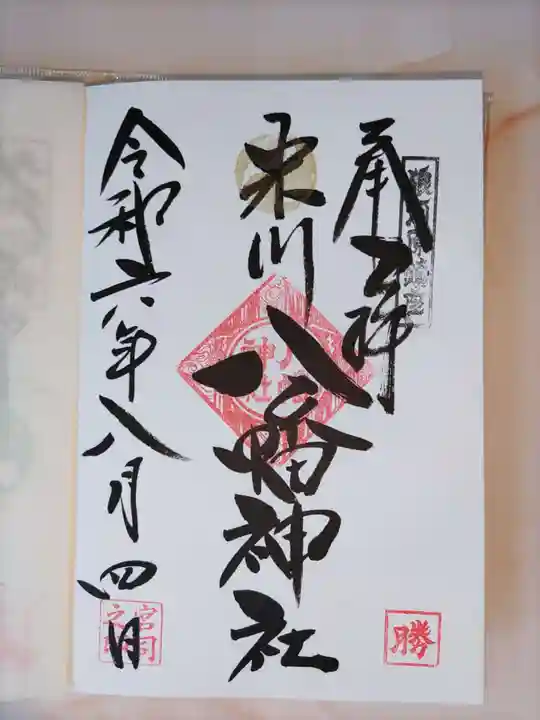 奉拝
栗川八幡神社
八幡神社
令和六年八月四日
勝
宮司之印